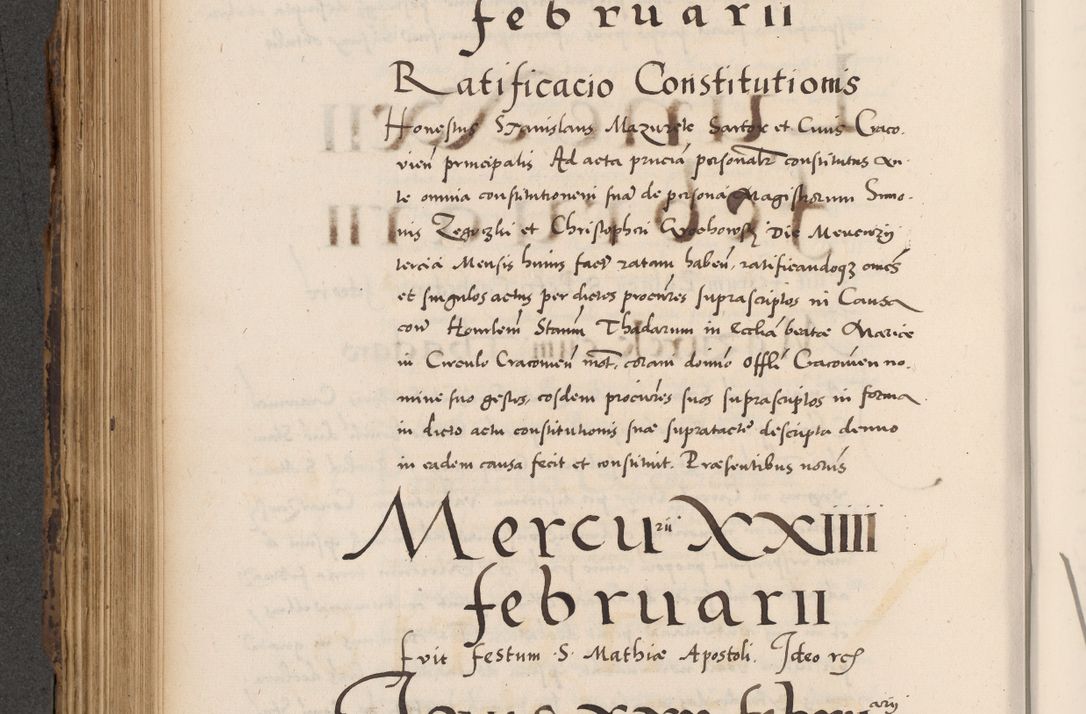 februarii
Ratificacio Constitutionis
Honestus Stanislaus Mazurek Sartor et Civis Craco-
vien̄ principalis Ad acta pn̄cia personalr̄ constitutus an-
te omnia constitutionem sua de persona Magistrorum Simo-
nis Zegrzki et Christopheri Die Mercurij
tercia Mensis huius fact ratam haben̄, ratificandoqꝫ om̄es
et singulos actus per dictos procur̄es suprascriptos in Causa
cum Honrlem Stanm̄ Thadarum in Ecclia beatae Mariae
in Circulo Cracovien̄ not, coram domīno Offlī Cracovien no-
mine suo gestos, eosdem procur̄es suos suprascriptos in forma
in dicto actu constitutionis suae supratacte descripta denuo
in eadem causa fecit et constituit. Praesentibus notarīs
Mercurii XXIIII
februarii
fuit festum S. Mathiae Apostoli. Ideo
Jovis XXV februarii